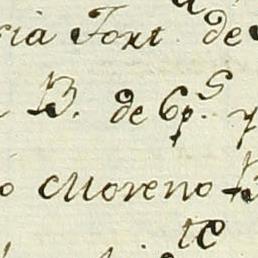 ria Font de
B. de 6p.s y
o Moreno B
te